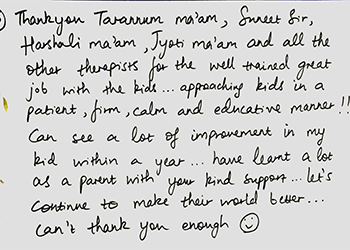 Thankyou Tarannum ma'am, Suneet Sir,
Harshali ma'am, Jyoti ma'am and all the
other therapists for the well trained great
job with the kids... approaching kids in a
patient, firm, calm and educative manner!!
Can see a lot of improvement in my
kid within a year... have learnt a lot
as a parent with your kind support... let's
continue to make their world better...
can't thank you enough ☺